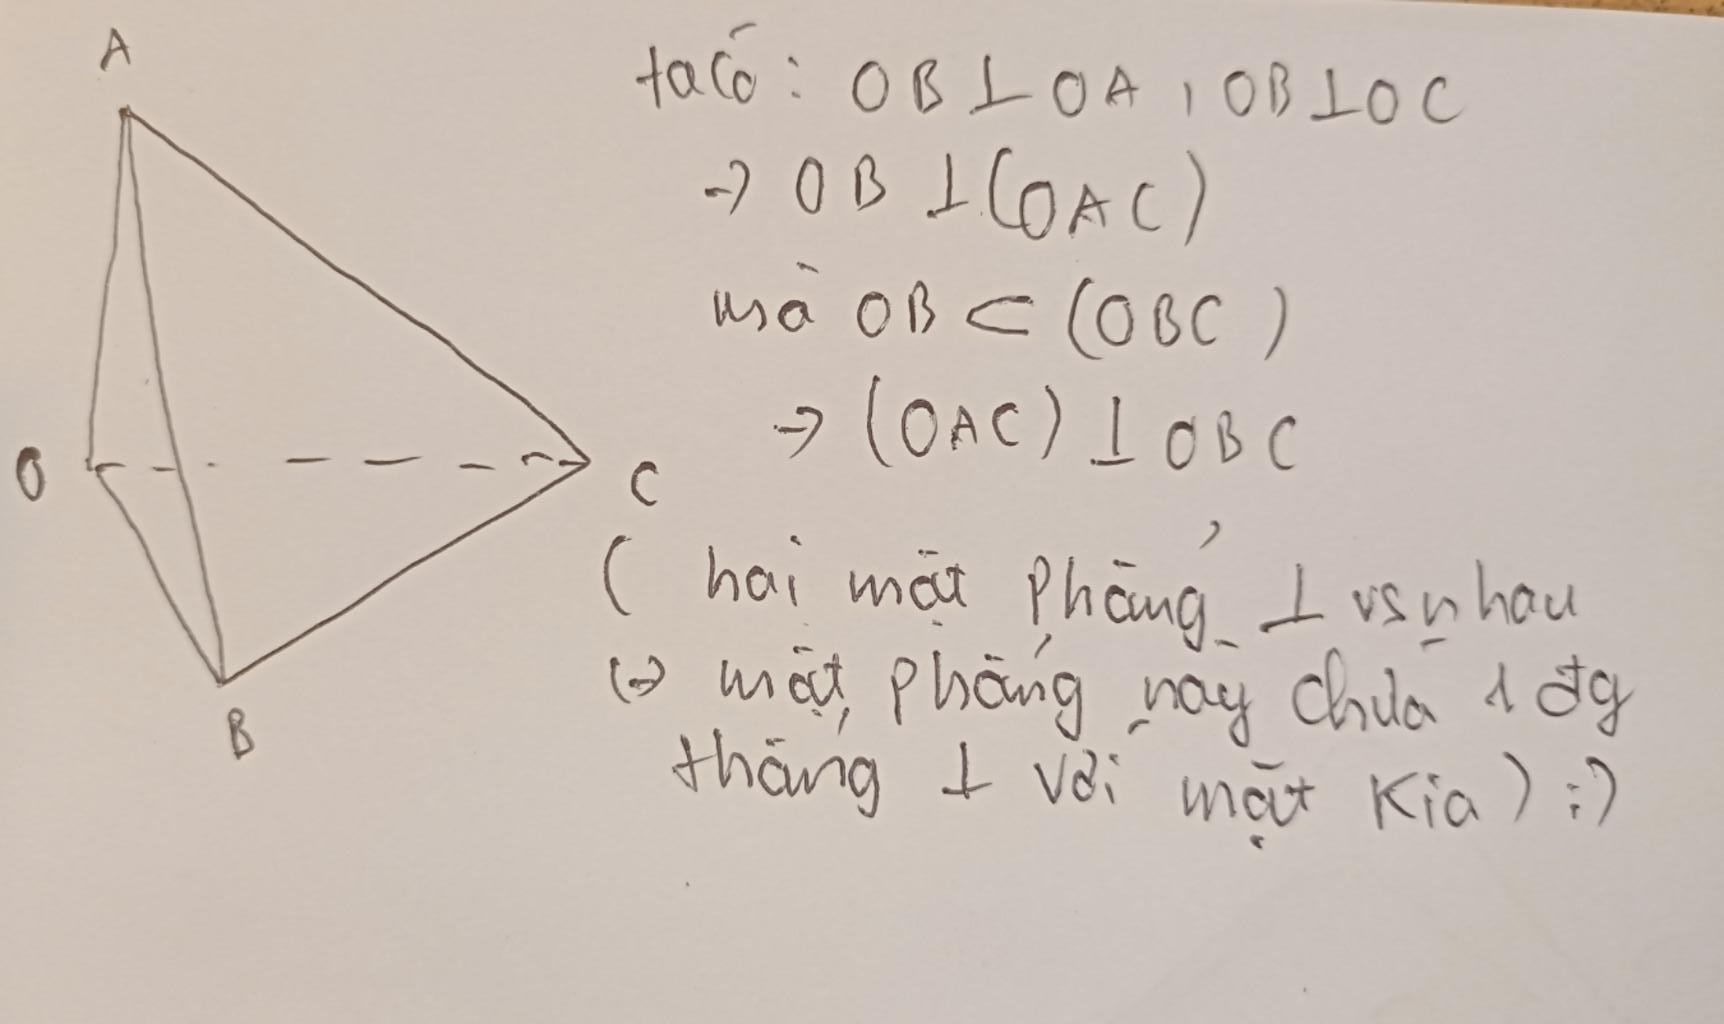 A
O
C
B
ta có : OB ⊥ OA , OB ⊥ OC
→ OB ⊥ (OAC)
mà OB ⊂ (OBC)
→ (OAC) ⊥ OBC
( hai mặt phẳng ⊥ vs nhau
(=) mặt phẳng này chứa 1 đg
thẳng ⊥ với mặt kia ) :)